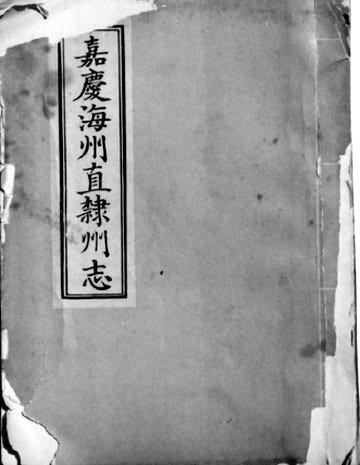 嘉慶海州直隷州志